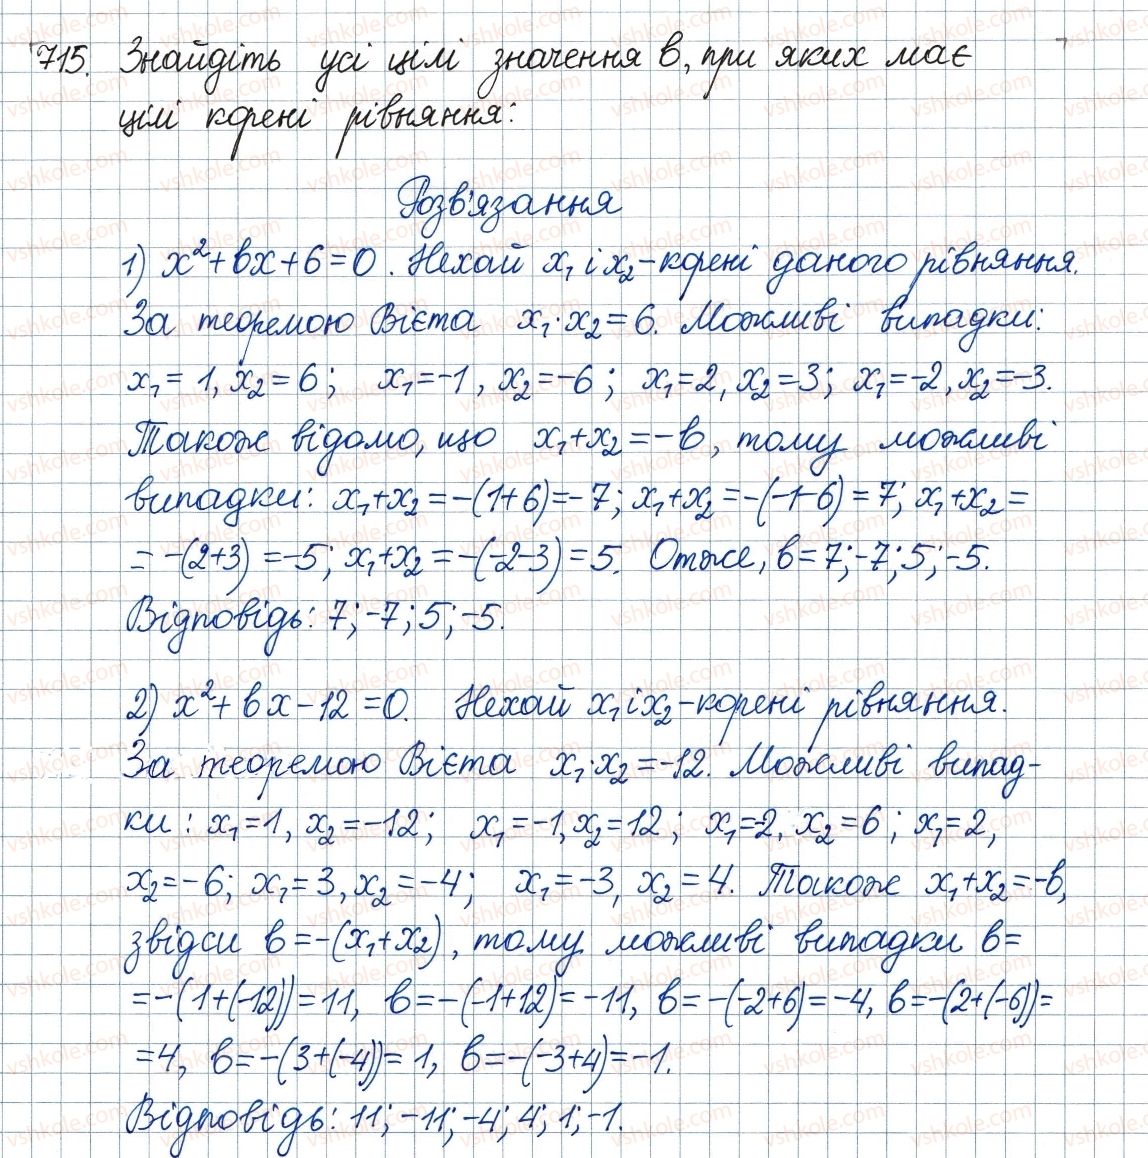 715. Знайдіть усі цілі значення в, при яких має
цілі корені рівняння:
Розв'язання
1) x²+вx+6=0. Нехай x₁ і x₂-корені даного рівняння.
За теоремою Вієта x₁·x₂=6. Можливі випадки:
x₁=1, x₂=6; x₁=-1, x₂=-6; x₁=2, x₂=3; x₁=-2, x₂=-3.
Також відомо, що x₁+x₂=-в, тому можливі
випадки: x₁+x₂=-(1+6)=-7; x₁+x₂=-(-1-6)=7; x₁+x₂=
=-(2+3)=-5; x₁+x₂=-(-2-3)=5. Отже, в=7;-7;5;-5.
Відповідь: 7;-7;5;-5.
2) x²+вx-12=0. Нехай x₁ і x₂-корені рівняння.
За теоремою Вієта x₁·x₂=-12. Можливі випад-
ки: x₁=1, x₂=-12; x₁=-1, x₂=12; x₁=-2, x₂=6; x₁=2,
x₂=-6; x₁=3, x₂=-4; x₁=-3, x₂=4. Також x₁+x₂=-в,
звідси в=-(x₁+x₂), тому можливі випадки в=
=-(1+(-12))=11, в=-(-1+12)=-11, в=-(-2+6)=-4, в=-(2+(-6))=
=4, в=-(3+(-4))=1, в=-(-3+4)=-1.
Відповідь: 11;-11;-4;4;1;-1.